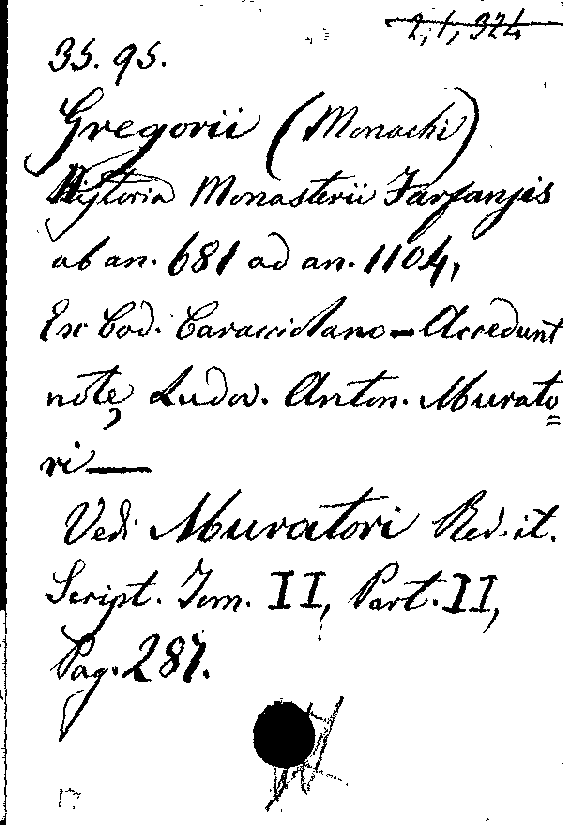 2, 1, 324
35. 95.
Gregorii (Monachi)
Historia Monasterii Farfensis
ab an. 681 ad an. 1104,
Ex Cod. Caracciolano — Accedunt
notę Ludov. Anton. Murato=
ri —
Vedi Muratori Rer. it.
Script. Tom. II, Part. II,
Pag. 287.